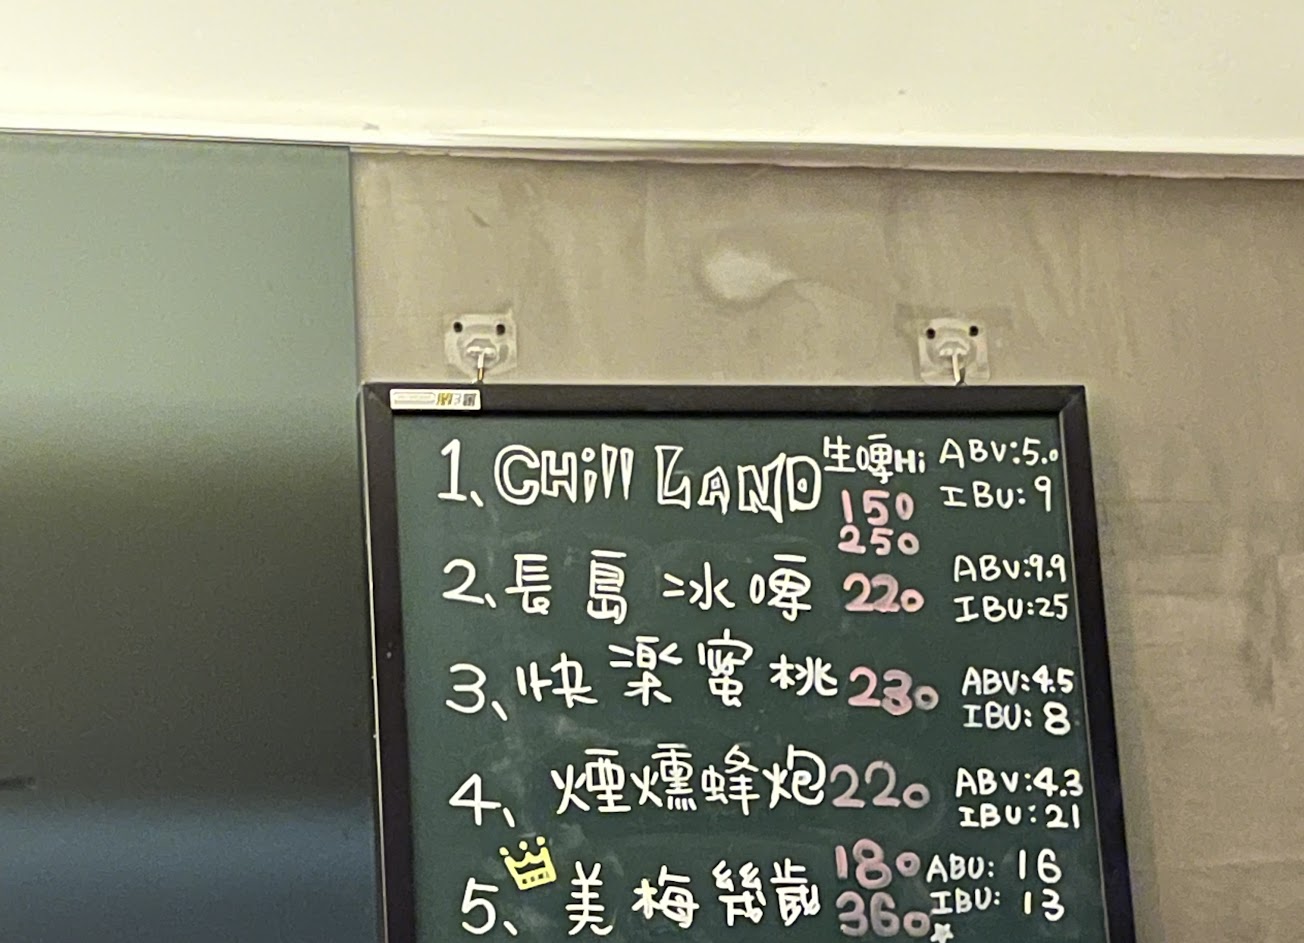 1、CHill LAND 生啤Hi 150 250 ABV:5.0 IBU:9
2、長島冰啤 220 ABV:9.9 IBU:25
3、快樂蜜桃 230 ABV:4.5 IBU:8
4、煙燻蜂炮 220 ABV:4.3 IBU:21
5、美梅幾歲 180 360 ABV:16 IBU:13